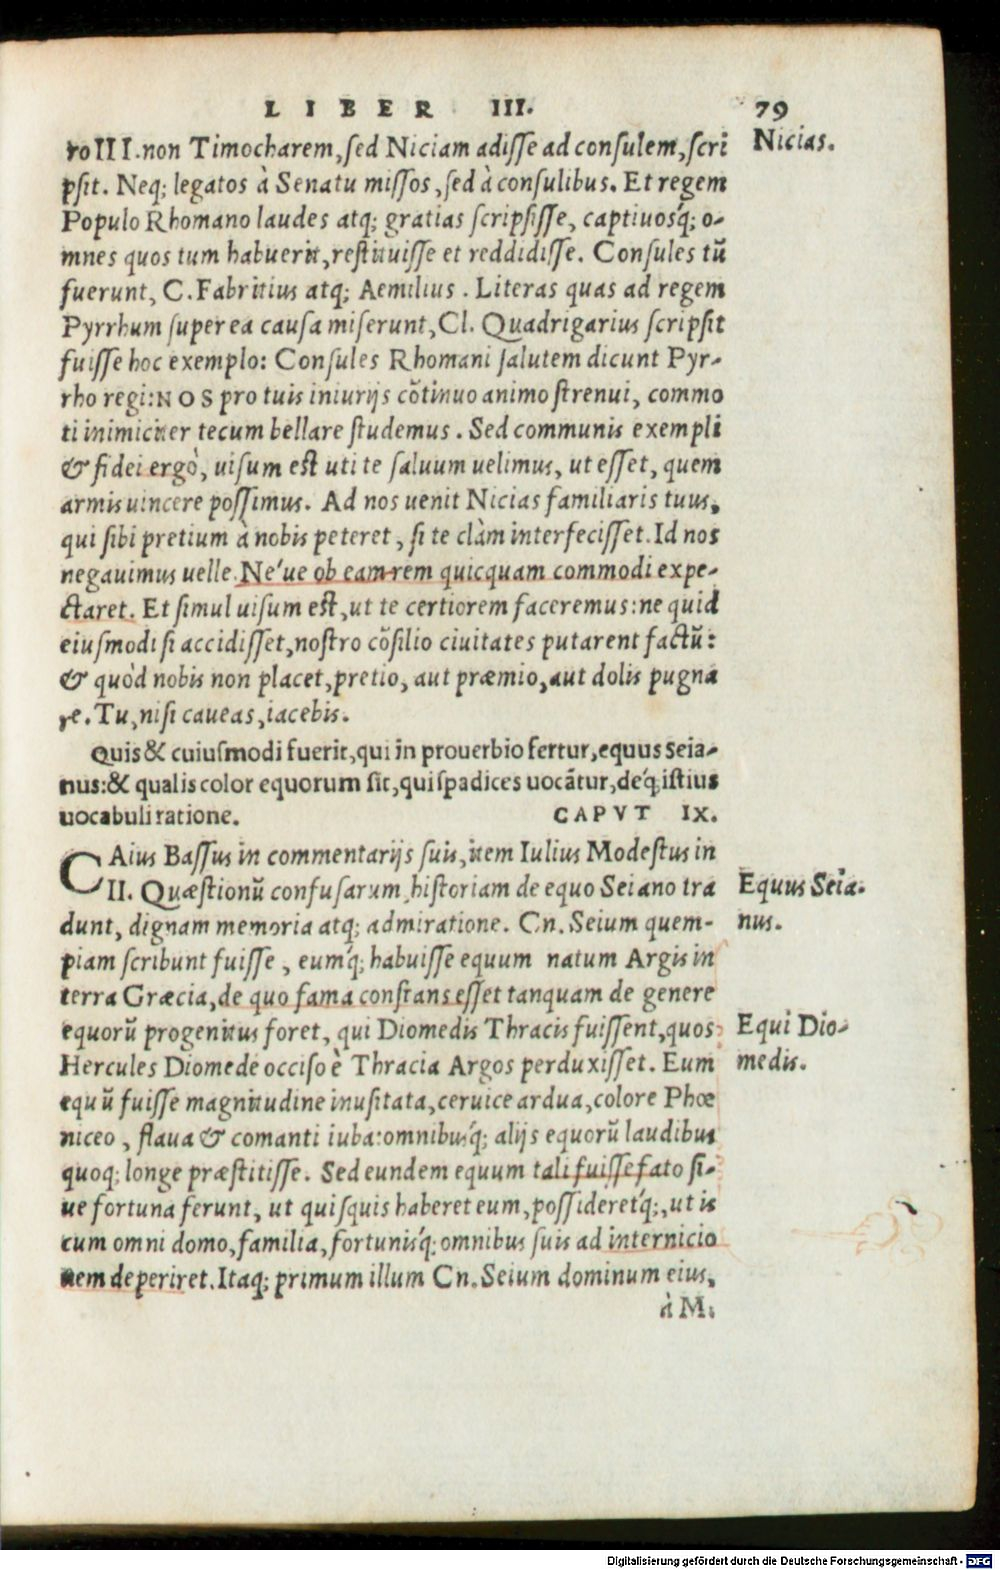 LIBER III. 79
ro III. non Timocharem, sed Niciam adisse ad consulem, scri
Nicias.
psit. Neq; legatos à Senatu missos, sed à consulibus. Et regem
Populo Rhomano laudes atq; gratias scripsisse, captiuosq́; o-
mnes quos tum habuerit, restituisse et reddidisse. Consules tū
fuerunt, C. Fabritius atq; Aemilius. Literas quas ad regem
Pyrrhum super ea causa miserunt, Cl. Quadrigarius scripsit
fuisse hoc exemplo: Consules Rhomani salutem dicunt Pyr-
rho regi: NOS pro tuis iniurijs cōtinuo animo strenui, commo
ti inimiciter tecum bellare studemus. Sed communis exempli
& fidei ergò, uisum est uti te saluum uelimus, ut esset, quem
armis uincere possimus. Ad nos uenit Nicias familiaris tuus,
qui sibi pretium à nobis peteret, si te clàm interfecisset. Id nos
negauimus uelle. Ne'ue ob eam rem quicquam commodi expe-
ctaret. Et simul uisum est, ut te certiorem faceremus: ne quid
eiusmodi si accidisset, nostro cōsilio ciuitates putarent factū:
& quòd nobis non placet, pretio, aut præmio, aut dolis pugna
re. Tu, nisi caueas, iacebis.
Quis & cuiusmodi fuerit, qui in prouerbio fertur, equus Seia-
nus: & qualis color equorum sit, qui spadices uocātur, deq́; istius
uocabuli ratione. CAPVT IX.
CAius Bassus in commentarijs suis, item Iulius Modestus in
II. Quæstionū confusarum, historiam de equo Seiano tra
Equus Seia-
dunt, dignam memoria atq; admiratione. Cn. Seium quem-
nus.
piam scribunt fuisse, eumq́; habuisse equum natum Argis in
terra Græcia, de quo fama constans esset tanquam de genere
equorū progenitus foret, qui Diomedis Thracis fuissent, quos
Equi Dio-
Hercules Diomede occiso è Thracia Argos perduxisset. Eum
medis.
equū fuisse magnitudine inusitata, ceruice ardua, colore Phœ
niceo, flaua & comanti iuba: omnibusq́; alijs equorū laudibus
quoq; longe præstitisse. Sed eundem equum tali fuisse fato si-
ue fortuna ferunt, ut quisquis haberet eum, possideretq́;, ut is
cum omni domo, familia, fortunisq́; omnibus suis ad internicio
nem deperiret. Itaq; primum illum Cn. Seium dominum eius,
à M.
Digitalisierung gefördert durch die Deutsche Forschungsgemeinschaft - DFG